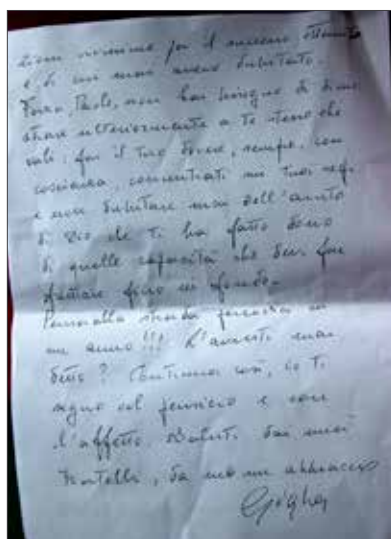 simo per il successo ottenuto
e di cui mai avevo dubitato.
Forza, Paolo, non hai bisogno di dimo
strare ulteriormente a te stesso che
vali: fai il tuo dovere, sempre, con
costanza, concentrati sui tuoi
e non dubitare mai dell'aiuto
di Dio che ti ha fatto dono
di quelle capacità che devi far
fruttare fino in fondo.
Pensa alla strada percorsa in
un anno!!! L'avresti mai
detto? Continua così, io ti
seguo col pensiero e con
l'affetto. Saluti dai tuoi
fratelli, da me un abbraccio